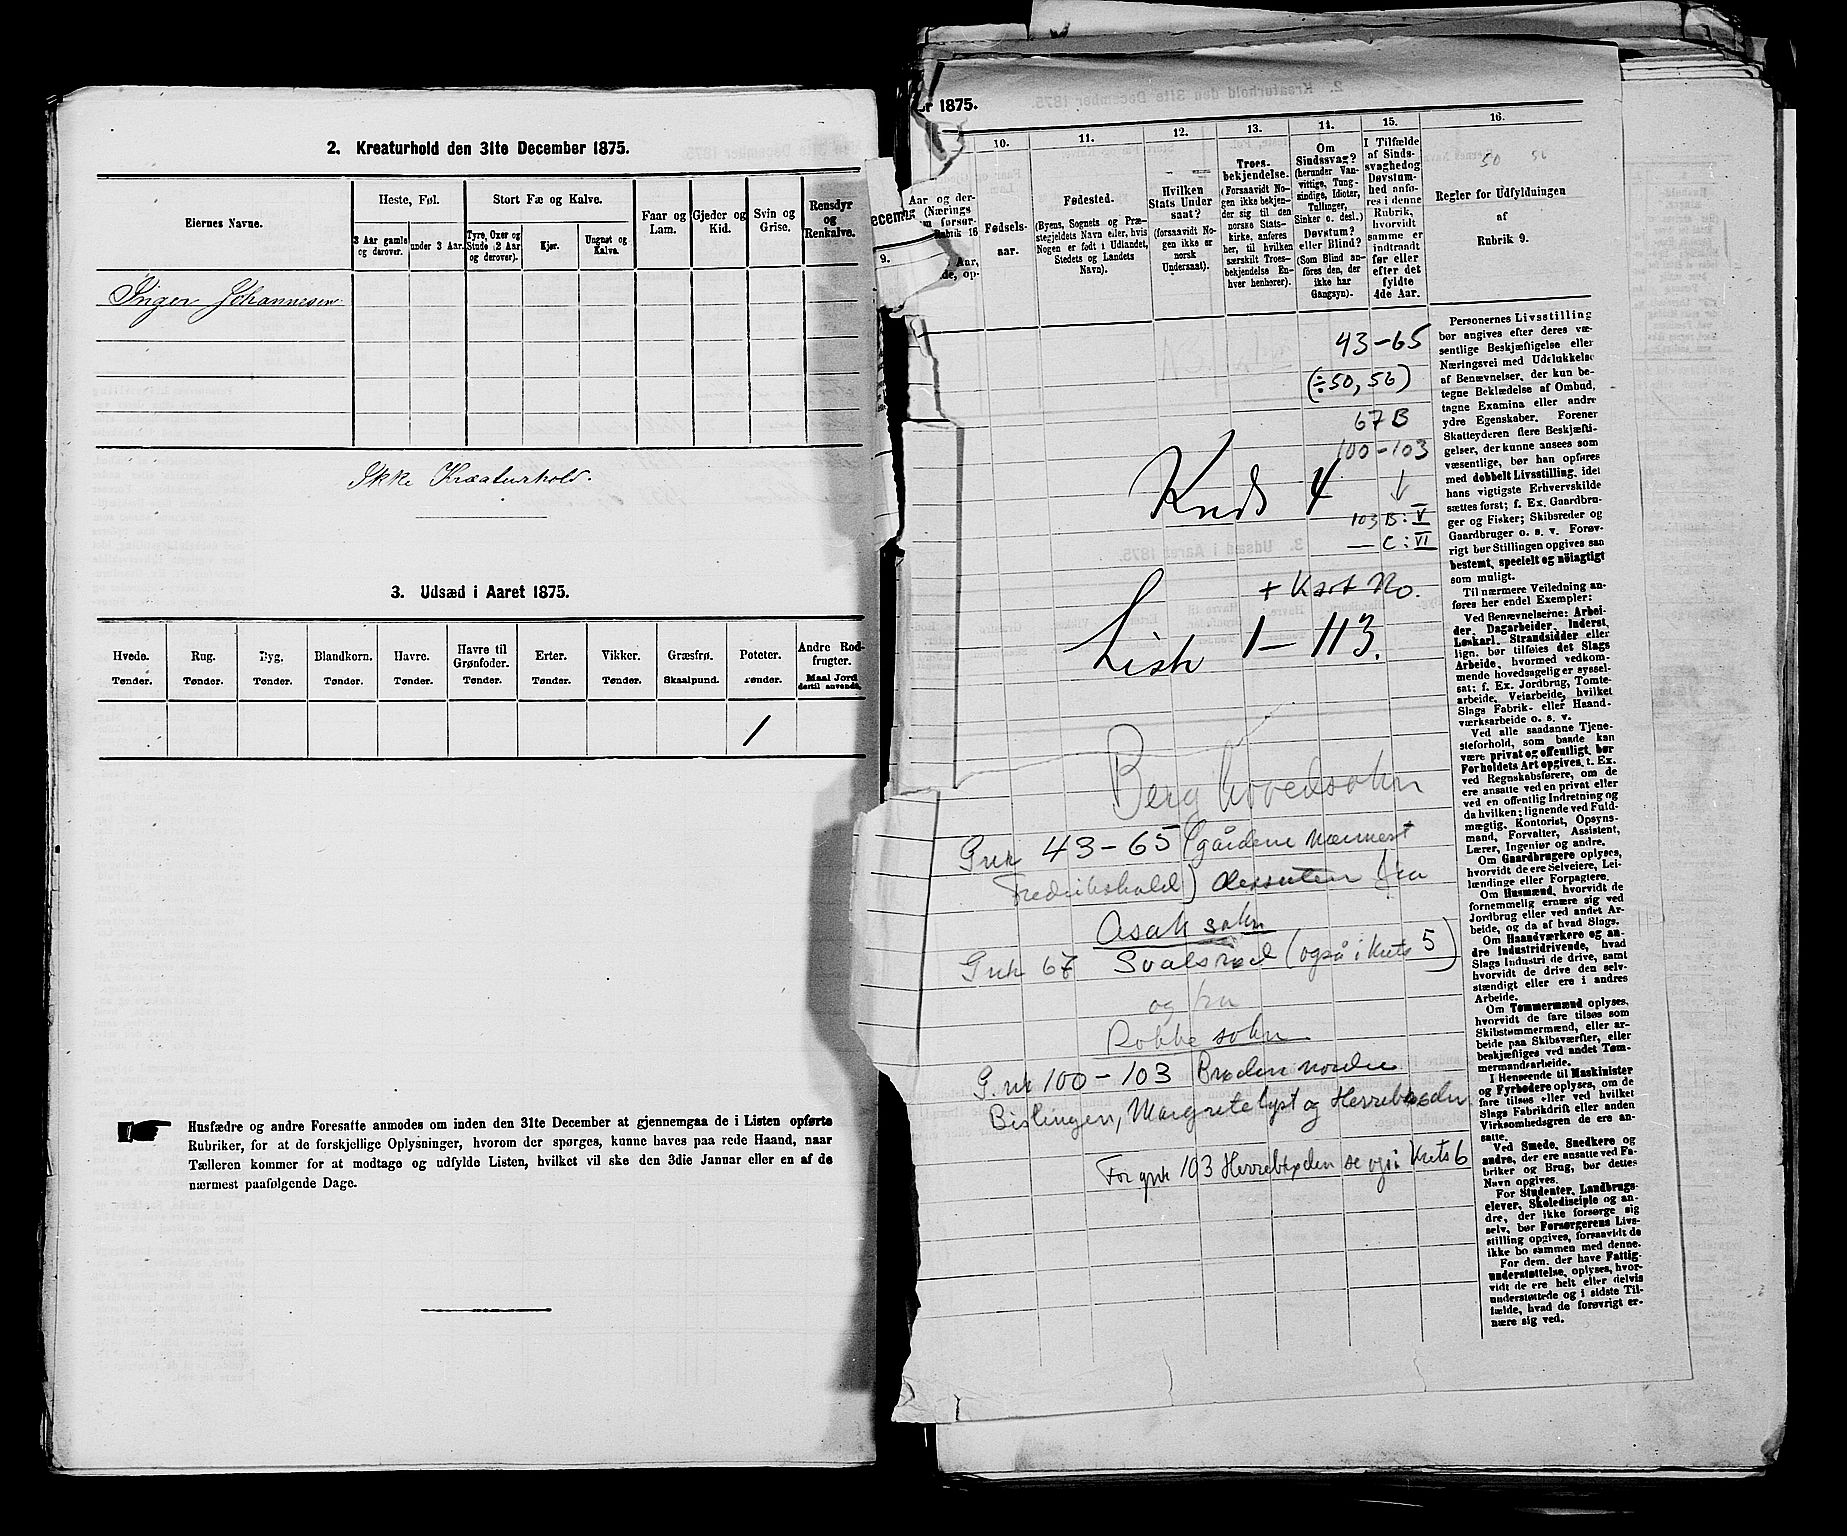 2. Kreaturhold den 31te December 1875.
Eiernes Navne.
Heste, Føl.
Stort Fæ og Kalve.
Faar og Lam.
Gjeder og Kid.
Svin og Grise.
Rensdyr og Renkalve.
3 Aar gamle og derover.
under 3 Aar.
Tyre, Oxer og Stude (2 Aar og derover).
Kjør.
Ungnøt og Kalve.
Inger Johannesen
Ikke Kreaturhold.
3. Udsæd i Aaret 1875.
Hvede. Rug. Byg. Blandkorn. Havre. Havre til Grønfoder. Erter. Vikker. Græsfrø. Poteter. Andre Rodfrugter.
Tønder. Tønder. Tønder. Tønder. Tønder. Tønder. Tønder. Tønder. Skaalpund. Tønder. Maal Jord dertil anvendt.
1
Husfædre og andre Foresatte anmodes om inden den 31te December at gjennemgaa de i Listen opførte
Rubriker, for at de forskjellige Oplysninger, hvorom der spørges, kunne haves paa rede Haand, naar
Tælleren kommer for at modtage og udfylde Listen, hvilket vil ske den 3die Januar eller en af de
nærmest paafølgende Dage.
er 1875.
10.
Fødsels-
aar.
11.
Fødested.
(Byens, Sognets og Præ-
stegjeldets Navn eller, hvis
Nogen er født i Udlandet,
Stedets og Landets
Navn).
12.
Hvilken
Stats Under
saat?
(forsaavidt No-
gen ikke er
norsk
Undersaat).
13.
Troes-
bekjendelse.
(Forsaavidt No-
gen ikke bekjen-
der sig til den
norske Stats-
kirke, anføres
her, til hvilken
særskilt Troes-
bekjendelse En-
hver henhører).
14.
Om
Sindssvag?
(herunder Van-
vittige, Tung-
sindige, Idioter,
Tullinger,
Sinker o. desl.)
Døvstum?
eller Blind?
(Som Blind an-
føres den, der
ikke har
Gangsyn).
15.
I Tilfælde
af Sinds-
svaghed og
Døvstum-
hed anfø-
res i denne
Rubrik,
hvorvidt
samme er
indtraadt
før eller
efter det
fyldte
4de Aar.
16.
50 56
Regler for Udfyldningen
af
Rubrik 9.
9.
43-65
(÷50, 56)
67 B
100-103
↓
Kreds 4
103 B: V
— C: VI
+ Kart No.
Liste 1-113.
Berg hovedsokn
Gnr 43-65 (gårdene nærmest
Fredrikshald) dessuten fra
Asak sokn
Gnr 67 Svalsrød (også i krets 5)
og fra
Rokke sokn
G.nr 100-103 Brøden nordre
Bislingen, Margretelyst og Herrebrøden
For gnr 103 Herrebrøden se også krets 6
Personernes Livsstilling
bør angives efter deres væ-
sentlige Beskjæftigelse eller
Næringsvei med Udelukkelse
af Benævnelser, der kun be-
tegne Beklædelse af Ombud,
tagne Examina eller andre
ydre Egenskaber. Forener
Skatteyderen flere Beskjæfti-
gelser, der kunne ansees som
væsentlige, bør han opføres
med dobbelt Livsstilling, idet
hans vigtigste Erhvervskilde
sættes først; f. Ex. Gaardbru-
ger og Fisker; Skibsreder og
Gaardbruger o. s. v. Forøv-
rigt bør Stillingen opgives saa
bestemt, specielt og nøiagtigt
som muligt.
Til nærmere Veiledning an-
føres her endel Exempler:
Ved Benævnelserne: Arbei-
der, Dagarbeider, Inderst,
Løskarl, Strandsidder eller
lign. bør tilføies det Slags
Arbeide, hvormed vedkom-
mende hovedsagelig er syssel-
sat; f. Ex. Jordbrug, Tomte-
arbeide, Veiarbeide, hvilket
Slags Fabrik- eller Haand-
værksarbeide o. s. v.
Ved alle saadanne Tjene-
steforhold, som baade kan
være privat og offentligt, bør
Forholdets Art opgives, t. Ex.
ved Regnskabsførere, om de
ere ansatte ved en privat eller
ved en offentlig Indretning og
da hvilken; lignende ved Fuld-
mægtig, Kontorist, Opsyns-
mand, Forvalter, Assistent,
Lærer, Ingeniør og andre.
Om Gaardbrugere oplyses,
hvorvidt de ere Selveiere, Lei-
lændinge eller Forpagtere.
Om Husmænd, hvorvidt de
fornemmelig ernære sig ved
Jordbrug eller ved andet Ar-
beide, og da af hvad Slags.
Om Haandværkere og an-
dre Industridrivende, hvad
Slags Industri de drive, samt
hvorvidt de drive den selv-
stændigt eller ere i andres
Arbeide.
Om Tømmermænd oplyses,
hvorvidt de fare tilsøs som
Skibstømmermænd, eller ar-
beide paa Skibsværfter, eller
beskjæftiges ved andet Tøm-
mermandsarbeide.
I Henseende til Maskinister
og Fyrbødere oplyses, om de
fare tilsøs eller ved hvilket
Slags Fabrikdrift eller anden
Virksomhedsgren de ere an-
satte.
Ved Smede, Snedkere og
andre, der ere ansatte ved Fa-
briker og Brug, bør dettes
Navn opgives.
For Studenter, Landbrugs-
elever, Skoledisciple og an-
dre, der ikke forsørge sig
selv, bør Forsørgerens Livs-
stilling opgives, forsaavidt de
ikke bo sammen med denne.
For dem, der have Fattig-
understøttelse, oplyses, hvor-
vidt de ere helt eller delvis
understøttede og i sidste Til-
fælde, hvad de forøvrigt er-
nære sig ved.